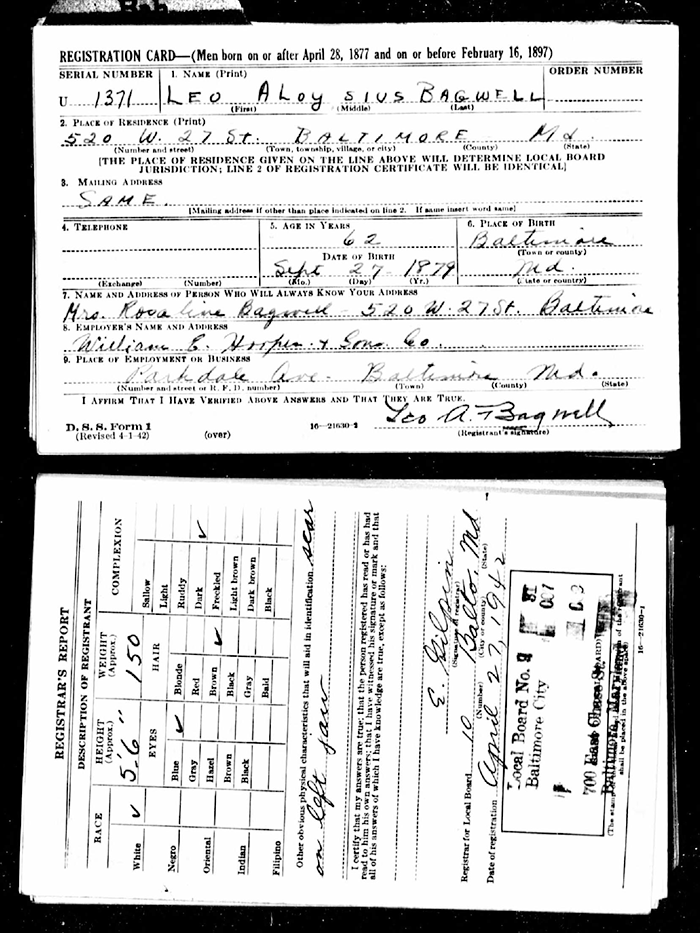 REGISTRATION CARD—(Men born on or after April 28, 1877 and on or before February 16, 1897)
SERIAL NUMBER 1. NAME (Print) ORDER NUMBER
U 1371 LEO ALOYSIUS BAGWELL
(First) (Middle) (Last)
2. PLACE OF RESIDENCE (Print)
520 W. 27 St. BALTIMORE Md.
(Number and street) (Town, township, village, or city) (County) (State)
[THE PLACE OF RESIDENCE GIVEN ON THE LINE ABOVE WILL DETERMINE LOCAL BOARD
JURISDICTION; LINE 2 OF REGISTRATION CERTIFICATE WILL BE IDENTICAL]
3. MAILING ADDRESS
SAME
[Mailing address if other than place indicated on line 2. If same insert word same]
4. TELEPHONE 5. AGE IN YEARS 6. PLACE OF BIRTH
62 Baltimore
(Town or county)
DATE OF BIRTH
Sept 27 1879 Md.
(Exchange) (Number) (Mo.) (Day) (Yr.) (State or country)
7. NAME AND ADDRESS OF PERSON WHO WILL ALWAYS KNOW YOUR ADDRESS
Mrs. Rosaline Bagwell - 520 W. 27 St. Baltimore
8. EMPLOYER'S NAME AND ADDRESS
William E. Hooper & Sons Co.
9. PLACE OF EMPLOYMENT OR BUSINESS
Parkdale Ave. Baltimore Md.
(Number and street or R. F. D. number) (Town) (County) (State)
I AFFIRM THAT I HAVE VERIFIED ABOVE ANSWERS AND THAT THEY ARE TRUE.
Leo A. Bagwell
D. S. S. Form 1
(Revised 4-1-42) (over) 16—21630-2 (Registrant's signature)
REGISTRAR'S REPORT
DESCRIPTION OF REGISTRANT
RACE HEIGHT (Approx.) WEIGHT (Approx.) COMPLEXION
White ✓ 5'6" 150 Sallow
EYES HAIR Light
Negro Blue ✓ Blonde Ruddy
Gray Red Dark ✓
Oriental Hazel Brown ✓ Freckled
Brown Black Light brown
Indian Black Gray Dark brown
Bald Black
Filipino
Other obvious physical characteristics that will aid in identification scar
on left jaw
I certify that my answers are true; that the person registered has read or has had
read to him his own answers; that I have witnessed his signature or mark and that
all of his answers of which I have knowledge are true, except as follows:
E. Gilpin
(Signature of registrar)
Registrar for Local Board 10 Balto. Md
(Number) (City or county) (State)
Date of registration April 27, 1942
Local Board No.
Baltimore City
OCT
700 East Chase St.
Baltimore, Maryland
shall be placed in the above space)
16—21630-1